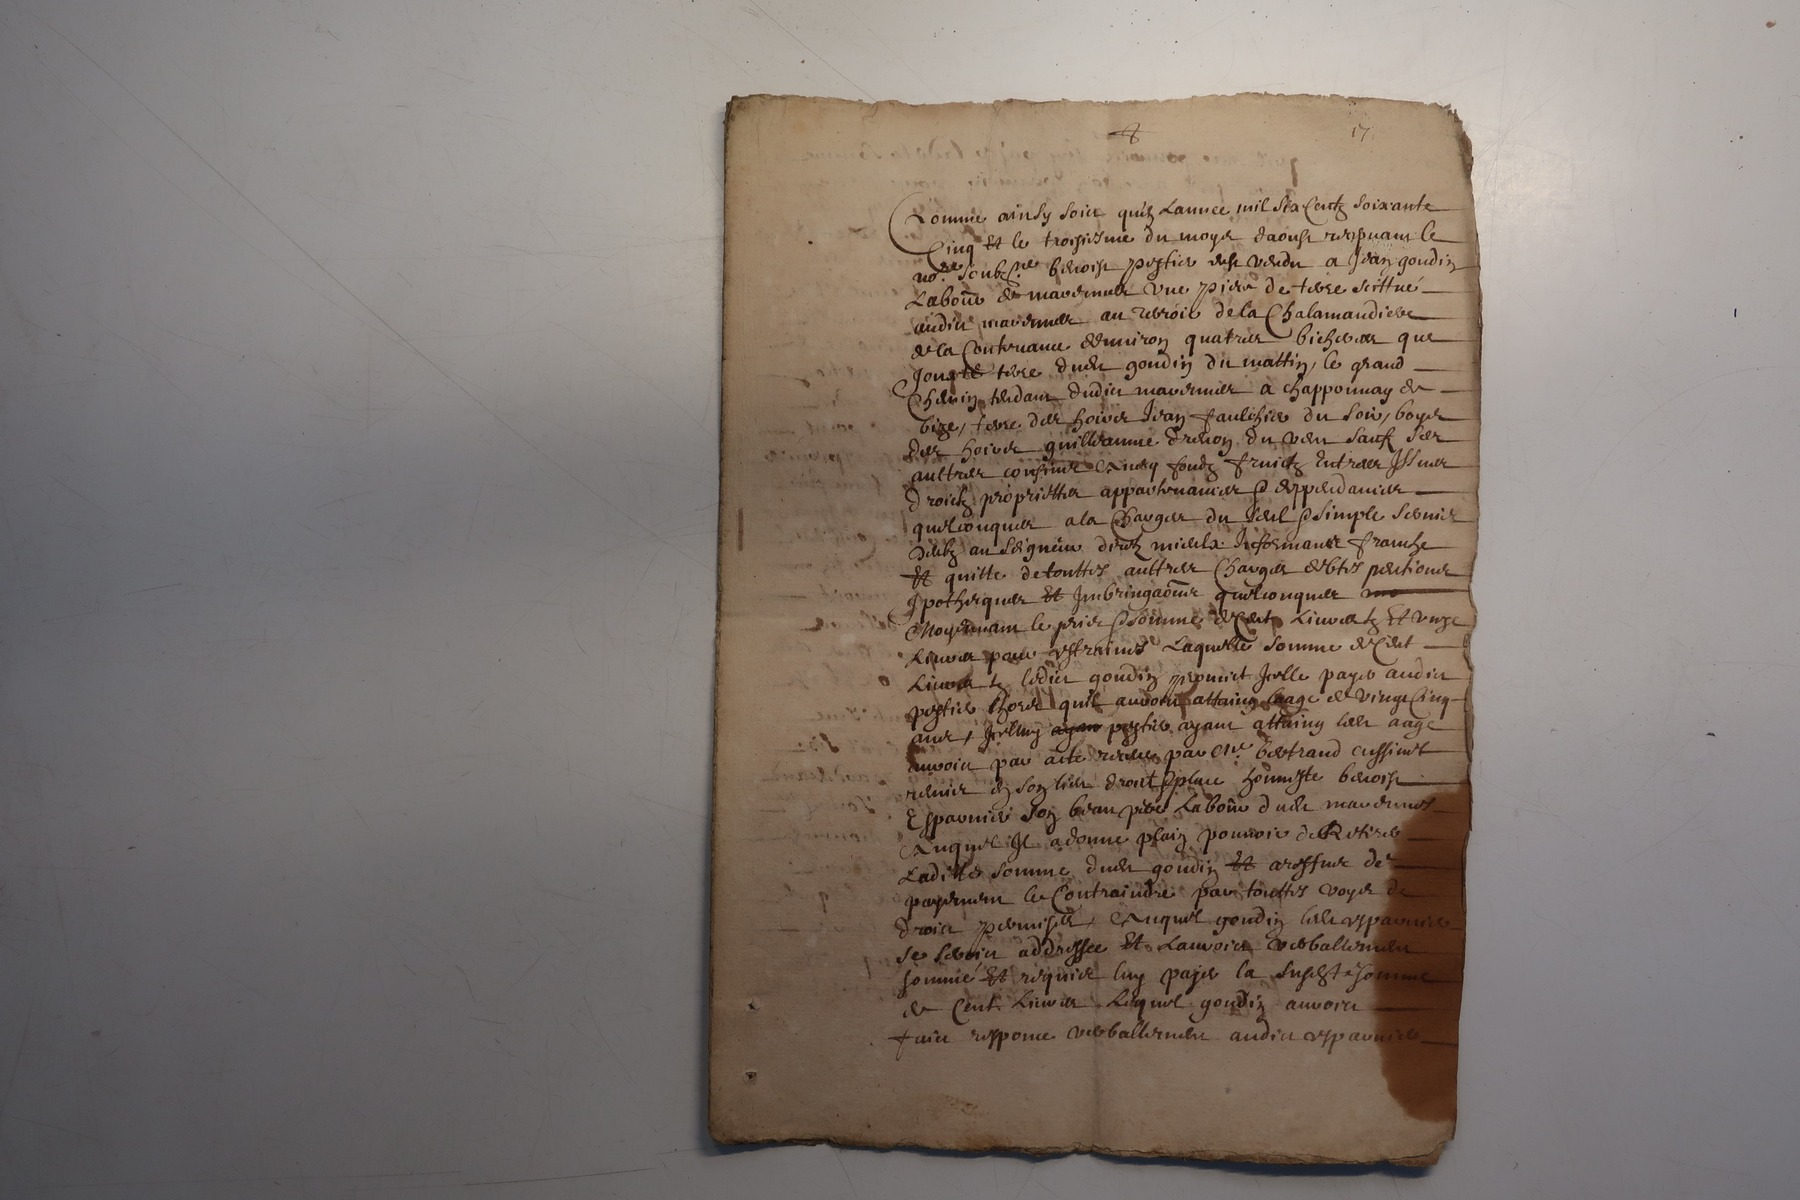 17
Comme ainsy soict quen Lannee mil six Centz soixante
Cinq Et le troisiesme du moys daoust recepvant le
no.re soubz.ne benoist pestier eust vendu a Jean goudin
Labour de marennes Une piece de terre scittue
audict marennes au terroir de la Chalamandiere
de la Contenance denviron quatres bicherees que
Jouste terre dudit goudin du mattin, le grand
Chemin tendant dudict marennes a chapponnay de
bize, terre des hoirs Jean faulchier du soir, boys
des hoirs guilleaume drevon du vent sauf ses
aulttres confins Avecq fondz fruictz Entrees Issues
droictz proprietes appartenances & deppendances
quelconques a la Charge du seul & simple servis
deubz au seigneur direct Infermant franche
Et quitte de touttes aulttres Charges debtes pentions
Ipotheques Et Imbringaons quelconques
Moyenant le prix & somme de Cent Livres tz Et unze
Livres pour estraines Laquelle somme de Cent
Livres tz ledict goudin promict Icelle payer audict
pestier Lhors quil auroict attaing Leage de Vingt Cinq
ans, Icelluy pestier ayant attaing led aage
auroict par acte receu par Me bertrand cussinet
remis en son lieu droict & place honneste benoist
Esparnier son beau pere Labour dudit marennes
Auquel Il a donne plain pouvoir de Retirer
Laditte somme dudit goudin Et a reffus de
payement le Contraindre par touttes voyes de
droict permises, Auquel goudin led esparnier
se seroict addresse Et Lauroict verballement
somme Et requis luy payer la susd.te somme
de Cent Livres Lequel goudin auroict
faict responce verballement audict esparnier